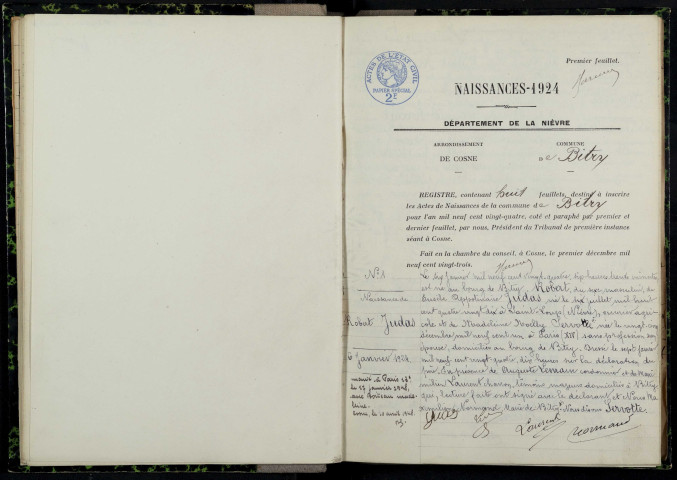 Premier feuillet.
ACTES DE L'ÉTAT CIVIL
PAPIER SPÉCIAL
2F
NAISSANCES-1924
DÉPARTEMENT DE LA NIÈVRE
ARRONDISSEMENT
DE COSNE
COMMUNE
de Bitry
REGISTRE, contenant huit feuillets, destiné à inscrire
les Actes de Naissances de la commune de Bitry
pour l'an mil neuf cent vingt-quatre, coté et paraphé par premier et
dernier feuillet, par nous, Président du Tribunal de première instance
séant à Cosne.
Fait en la chambre du conseil, à Cosne, le premier décembre mil
neuf cent vingt-trois.
N° 1
Naissance de
Robert Judas
6 Janvier 1924
marié à Paris
le 17 janvier 1948
avec
le 10 avril 1948
Le six janvier mil neuf cent vingt quatre, dix heures trente minutes
est né au bourg de Bitry, Robert, du sexe masculin, de
Appolinaire Judas, né le dix juillet mil huit
cent quatre vingt dix à Saint-Loup (Nièvre), ouvrier agri
cole et de Madeleine Servotte née le vingt
décembre mil neuf cent un à Paris sans profession son
épouse, domiciliés au bourg de Bitry. Dressé le sept janvier
mil neuf cent vingt quatre, dix heures sur la déclaration du
père. En présence de Auguste cordonnier et de Maxi
milien Laurent témoins majeurs domiciliés à Bitry
qui, lecture faite ont signé avec le déclarant et Nous
Normand, Maire de Bitry. Servotte.
Judas
Laurent
Normand